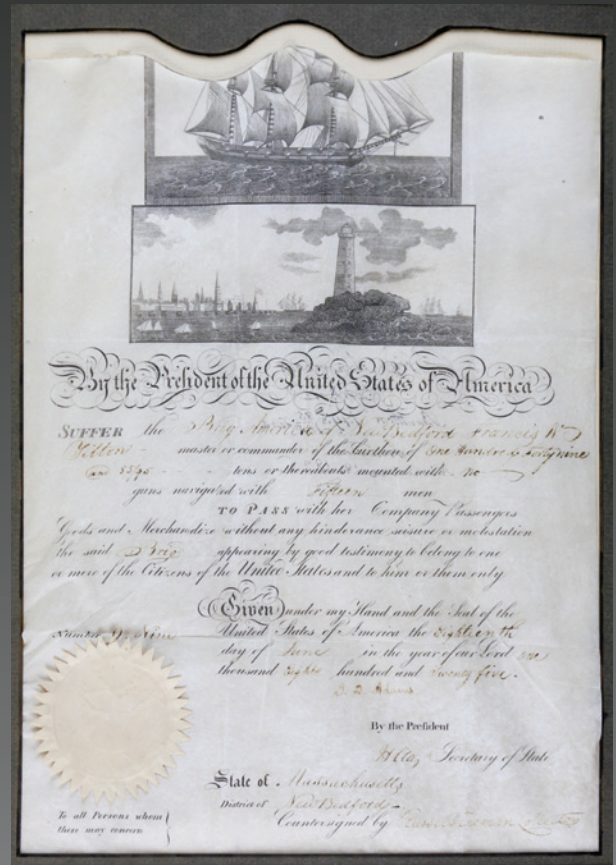 By the President of the United States of America
SUFFER the Brig America of New Bedford Francis
Tilton master or commander of the Burthen of One Hundred Forty nine
and 53/95 tons or thereabouts mounted with no
guns navigated with Fifteen men
TO PASS with her Company Passengers
Goods and Merchandize without any hinderance seisure or molestation
the said Brig appearing by good testimony to belong to one
or more of the Citizens of the United States and to him or them only
Given under my Hand and the Seal of the
Number Nine United States of America the Eighteenth
day of June in the year of our Lord One
thousand eight hundred and twenty five.
J. Q. Adams
By the President
H Clay Secretary of State
State of Massachusetts
District of New Bedford
Countersigned by
To all Persons whom
these may concern